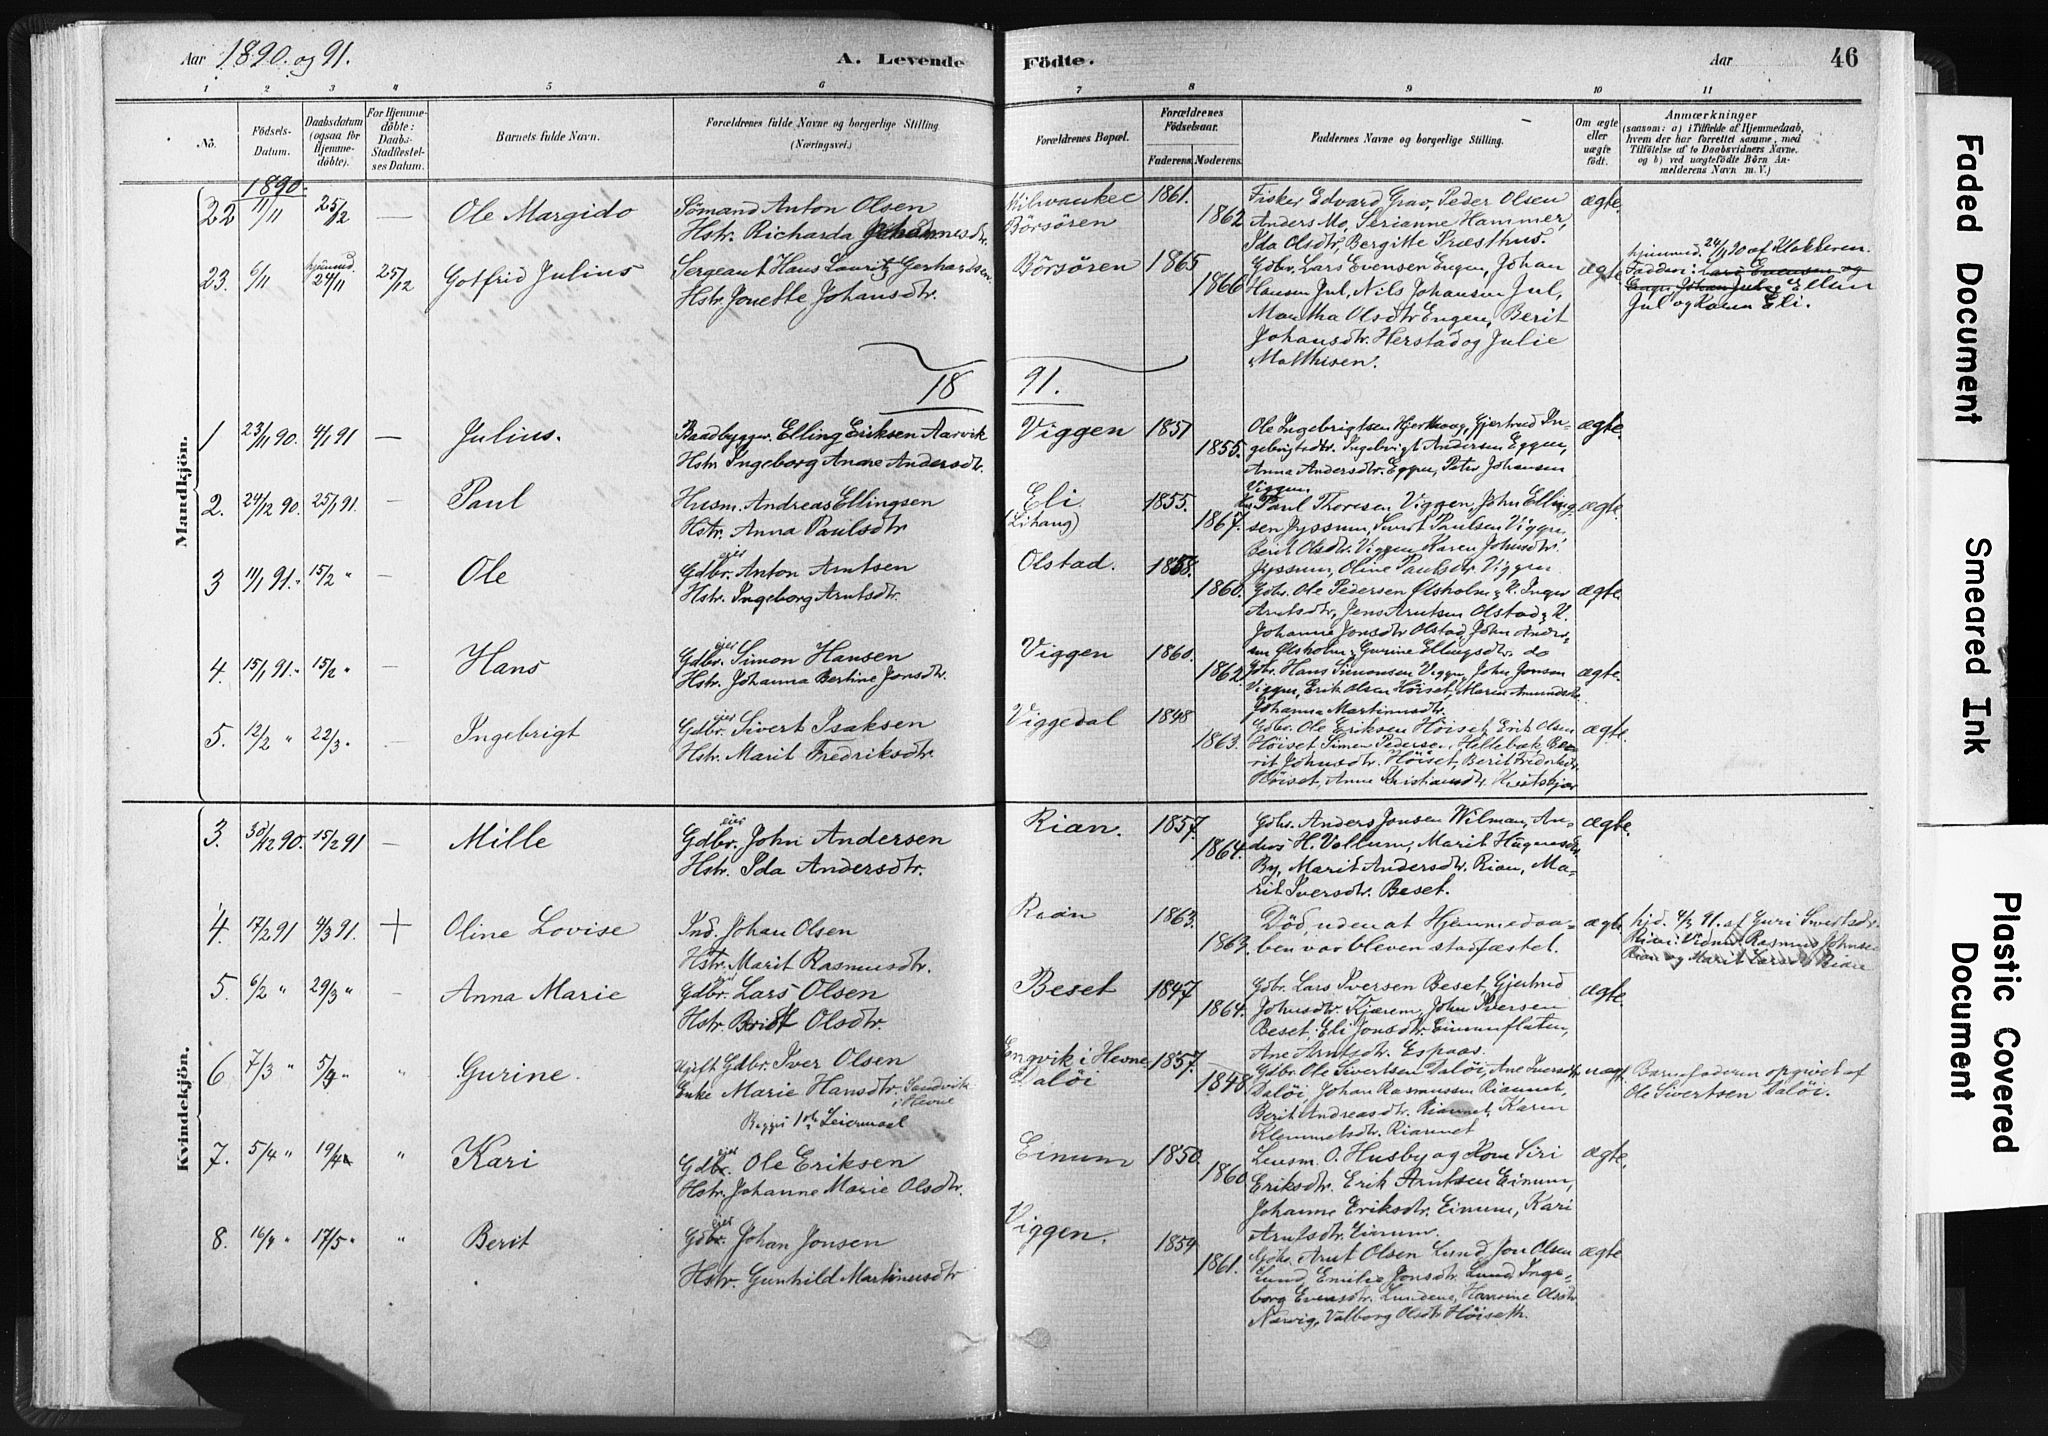 Aar 1890. og 91.
A. Levende Födte.
Aar
46
1 2 3 4 5 6 7 8 9 10 11
No.
Födsels-Datum.
Daabsdatum (ogsaa for Hjemme-döbte).
For Hjemme-döbte: Daabs-Stadfæstel-ses Datum.
Barnets fulde Navn.
Forældrenes fulde Navne og borgerlige Stilling (Næringsvei.)
Forældrenes Bopæl.
Forældrenes Födselsaar.
Faderens. Moderens.
Faddernes Navne og borgerlige Stilling.
Om ægte eller uægte födt.
Anmærkninger
(saasom: a) i Tilfælde af Hjemmedaab,
hvem der har forrettet samme, med
Tilföielse af to Daabsvidners Navne.
og b) ved uægtefödte Börn An-
melderens Navn m. V.)
Mandkjön.
1890.
22 11/11 25/12 — Ole Margido
Sömand Anton Olsen
Hstr. Richarda
Milwaukee
Börsören
1861.
1862
Fisker Edvard Grav, Peder Olsen
Anders Mo, Serianne Hammer,
Ida Olsdtr, Bergitte Præsthus.
ægte.
23. 6/11 hjemmed. 24/11 25/12 Gotfrid Julius
Sergeant Hans Lauritz Gerhardsen
Hstr. Jonette Johansdtr.
Börsören
1865
1866
Gdbr. Lars Evensen Engen, Johan
Hansen Jul, Nils Johansen Jul,
Martha Olsdtr Engen, Berit
Johansdtr. Herstad og Julie
Matthisen.
ægte
hjemmed. 24/11 90 af Klokkeren.
Faddere: Lars Evensen og
Engen, Johan Jul og Ellen
Jul og Karen Eli.
18 91.
1 23/11 90. 4/1 91 — Julius.
Baadbygger. Elling Eriksen Aarvik
Hstr Ingeborg Anne Andersdt.
Viggen
1851
1855.
Ole Ingebrigtsen Gjertrud In-
gebrigtsdtr. Ingebrigt Andersen Eggen,
Anna Andersdtr. Eggen, Peter Johansen
Viggen
ægte.
2. 24/12 90. 25/1 91. — Paul
Husm. Andreas Ellingsen
Hstr. Anna Paulsdtr
Eli
(Lihaug)
1855.
1867.
Paul Thoresen Viggen, John Elling-
sen Jyssum, Sivert Paulsen Viggen,
Berit Olsdtr. Viggen Karen Johnsdtr.
Jyssum, Oline Paulsdtr. Viggen.
ægte.
3 11/1 91. 15/2 " — Ole
Gdbr.eier Anton Arntsen
Hstr. Ingeborg Arntsdtr.
Olstad.
1858.
1860.
Gdbr. Ole Pedersen Ølsholm, K. Inger
Arntsdtr, Jens Arntsen Olstad, K.
Johanne Jonsdtr Olstad, John Ander-
sen Ølsholm, Gurine Ellingsdtr. do
ægte.
4. 15/1 91. 15/2 " — Hans
Gdbr.eier Simon Hansen
Hstr. Johanna Bertine Jonsdtr.
Viggen
1860.
1862
Gdbr. Hans Simonsen Viggen, John Jonsen
Viggen, Erik Olsen Höiset, Maren
Johanna Martinusdtr.
ægte.
5. 12/2 " 22/3 " — Ingebrigt
Gdbr.eier Sivert Isaksen
Hstr. Marit Fredriksdtr.
Viggedal
1848
1863.
Gdbr. Ole Eriksen Höiset, Erik Olsen
Höiset, Simen Pedersen Hellebæk Be-
rit Johnsdtr. Höiset, Berit
Höiset, Anne Kristiansdtr.
ægte.
Kvindekjön.
3. 30/12 90. 15/2 91 — Mille
Gdbr.eier John Andersen
Hstr. Ida Andersdtr.
Rian.
1857.
1864.
Gdbr. Anders Jonsen Wilman, An-
ders H. Vollum, Marit
By, Marit Andersdtr. Rian, Ma-
rit Iversdtr. Beset.
ægte.
4. 17/2 91 4/3 91. + Oline Lovise
Ind. Johan Olsen
Hstr. Marit Rasmusdtr.
Rian
1863.
1863.
Död, uden at Hjemmedaa-
ben var bleven stadfæstet.
ægte
hjd. 4/3 91. af Guri Sivertsdtr.
Rian. Vidner Rasmus Johnsen
Rian og Marit Rian
5. 6/2 " 29/3 " — Anna Marie
Gdbr.eier Lars Olsen
Hstr. Olsdtr.
Beset
1847
1864.
Gdbr. Lars Iversen Beset, Gjertrud
Johnsdtr. Kjærem, John Iversen
Beset, Eli Jonsdtr. Einumflaten,
Ane Arntsdtr. Espaas.
ægte.
6 7/3 " 5/4 " " Gurine.
Ugift Gdbr. Iver Olsen
Enke Marie Hansdtr. Sandvik i Hevne
Begges 1ste Leiermaal
Engvik i Hevne
Dalöi
1857.
1848
Gdbr. Ole Sivertsen Dalöi, Ane Iversdtr
Dalöi, Johan Rasmussen Rianmet,
Berit Andreasdtr. Rianmet, Karen
Klemmetsdtr. Rianmet
uægt.
Barnefaderen opgivet af
Ole Sivertsen Dalöi.
7. 5/4 " 19/4 " Kari
Gdbr.eier Ole Eriksen
Hstr. Johanne Marie Olsdtr.
Einum
1850.
1860
Lensm. O. Husby og Kone Siri
Eriksdtr. Erik Arntsen Einum,
Johanne Eriksdtr. Einum, Kari
Arntsdtr. Einum.
ægte.
8. 16/4 " 17/5 " " Berit
Gdbr.eier Johan Jonsen
Hstr. Gunhild Martinusdtr
Viggen.
1854
1861.
Gdbr. Arnt Olsen Lund, Jon Olsen
Lund, Emilie Jonsdtr. Lund, Inge-
borg Evensdtr. Lundene, Hansine Olsdtr.
Nærvig, Valborg Olsdtr Höiseth.
ægte
Faded Document
Smeared Ink
Plastic Covered Document